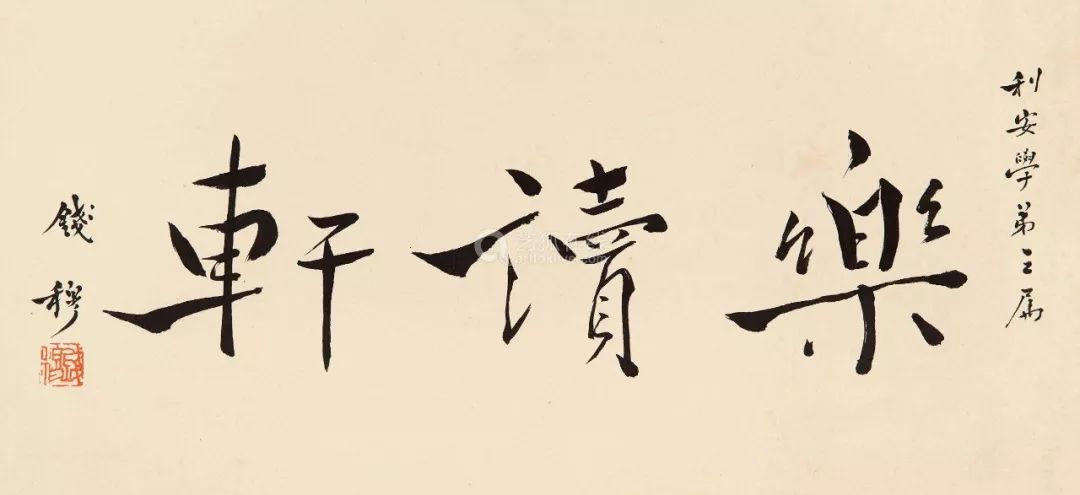 利安學弟之属
樂讀軒
錢穆